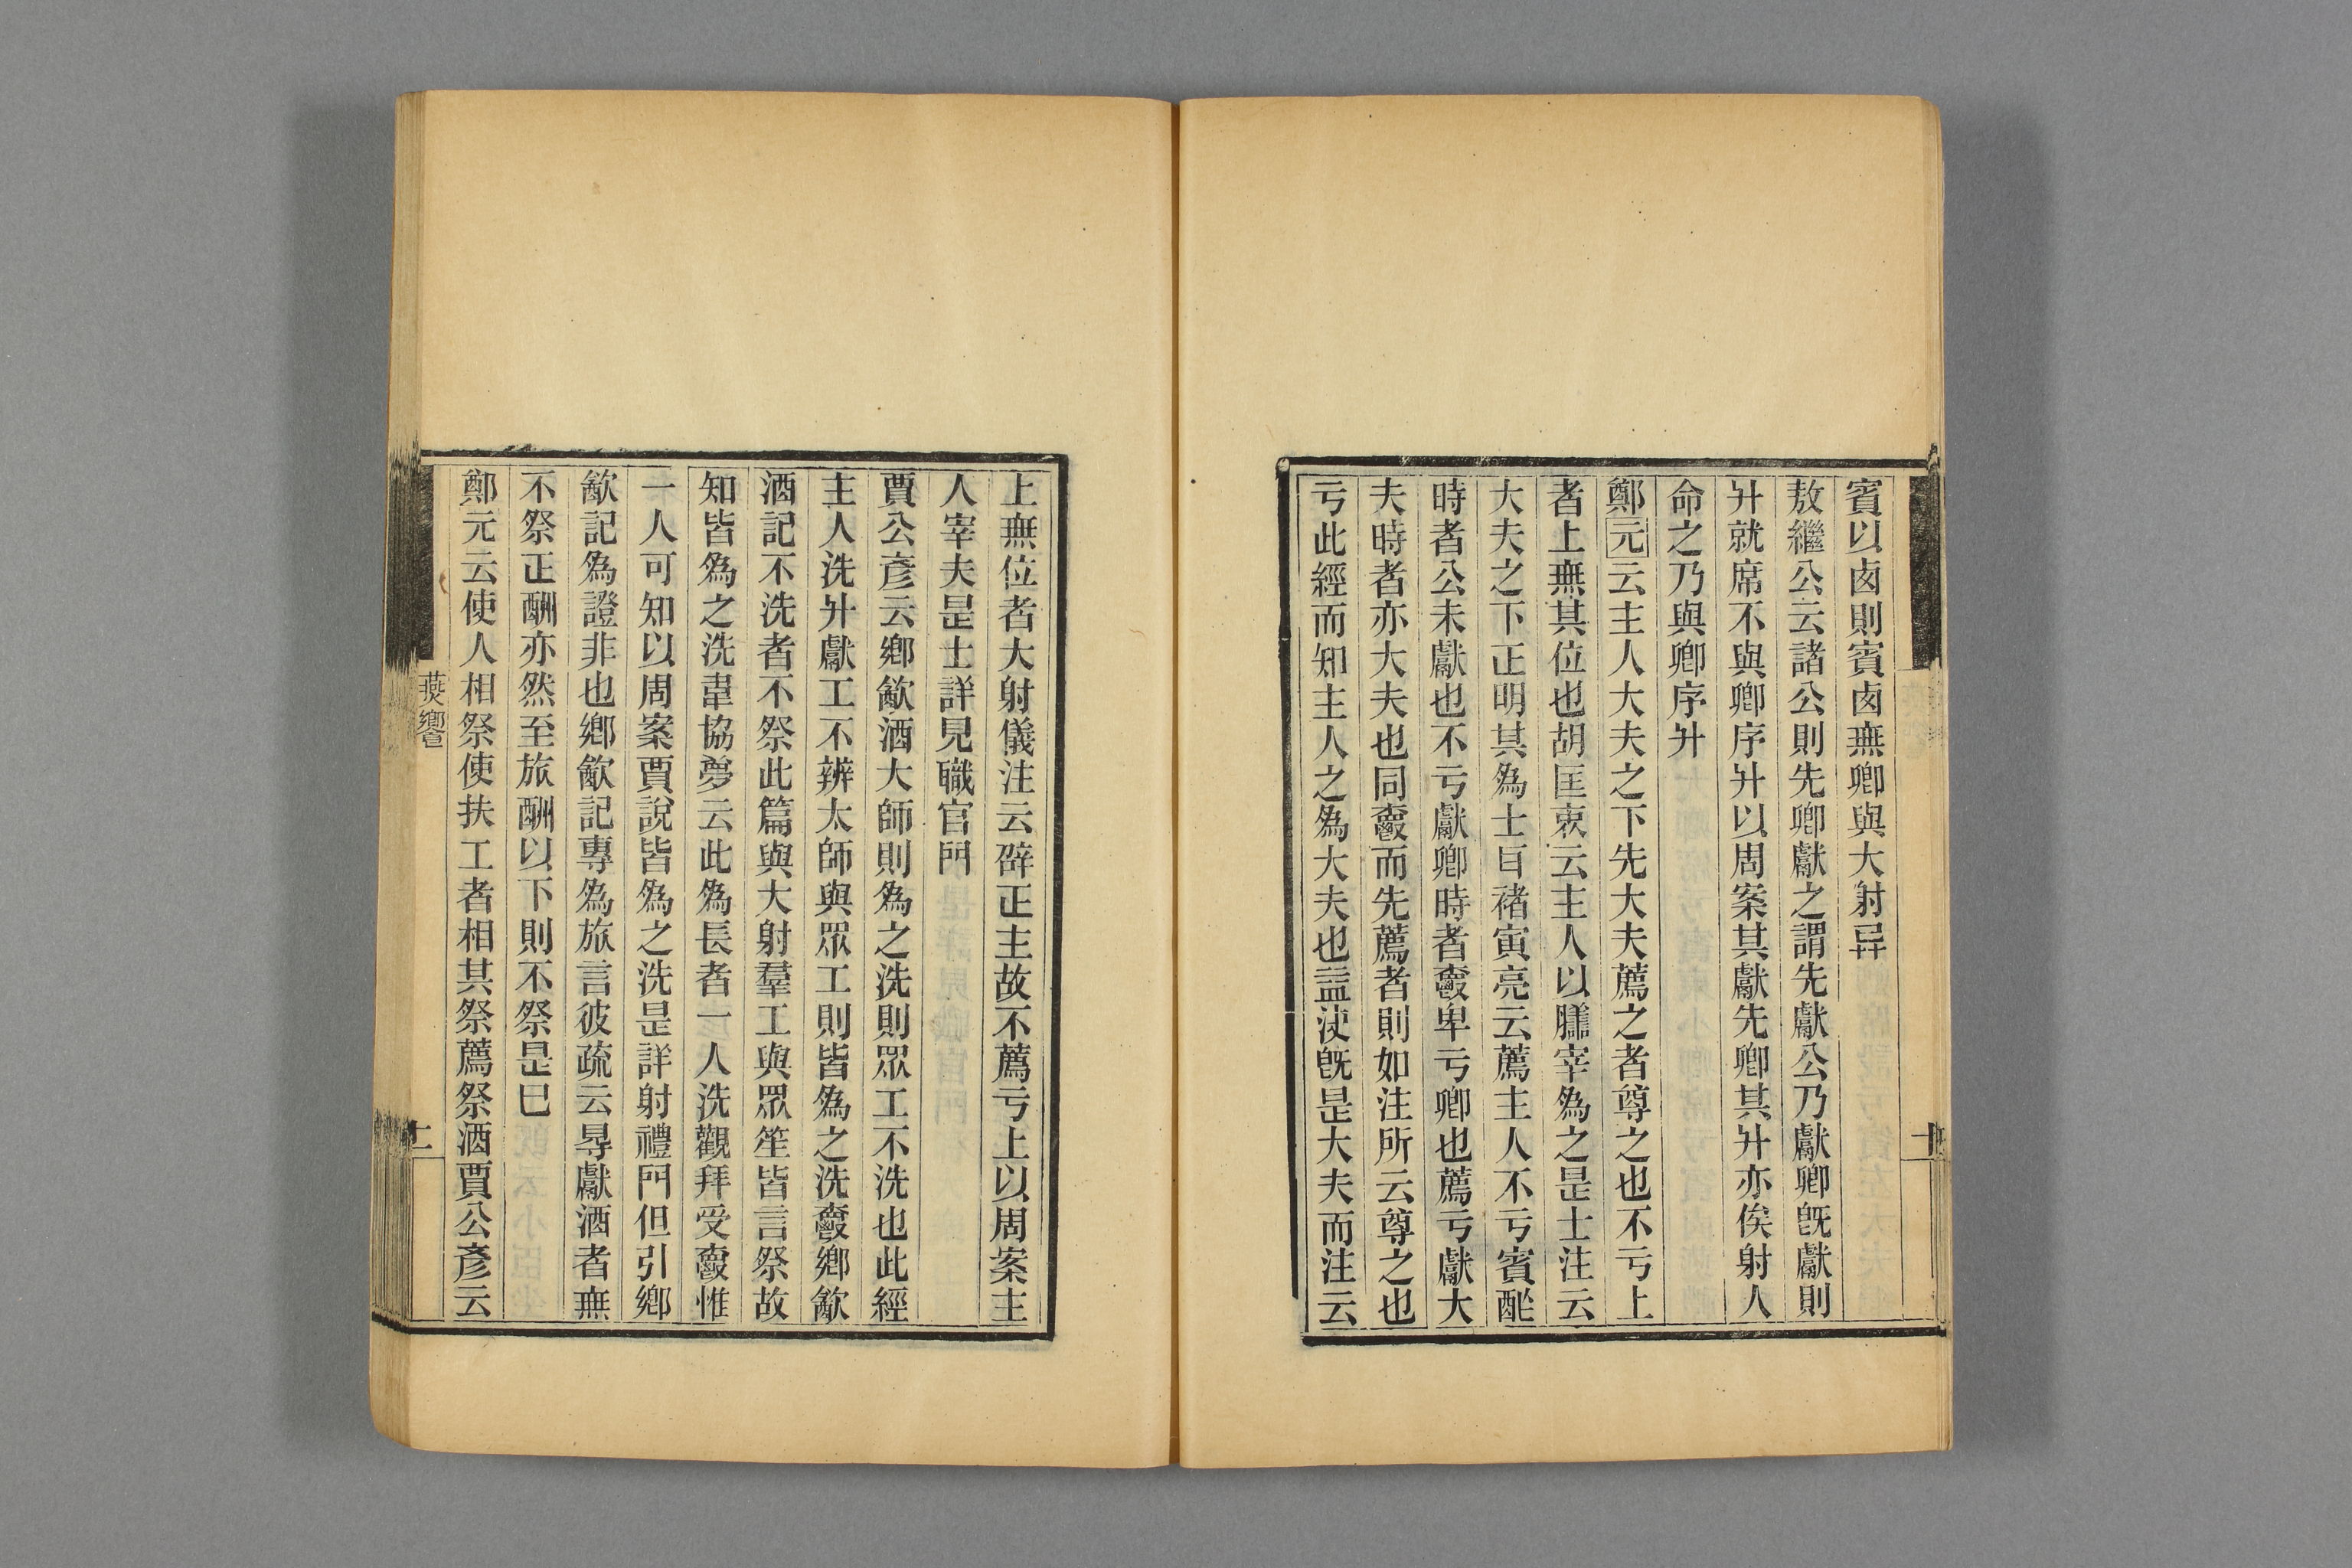 賓以㢴則賓㢴無卿與大射异
敖繼公云諸公則先卿獻之謂先獻公乃獻卿旣獻則
升就席不與卿序升以周案其獻先卿其升亦俟射人
命之乃與卿序升
鄭元云主人大夫之下先大夫薦之者尊之也不亏上
者上無其位也胡匡衷云主人以膳宰為之是士注云
大夫之下正明其為士㠯褚寅亮云薦主人不亏賓酢
時者公未獻也不亏獻卿時者𡕢卑亏卿也薦亏獻大
夫時者亦大夫也同𡕢而先薦者則如注所云尊之也
亏此經而知主人之為大夫也葢决旣是大夫而注云
上無位者大射儀注云辟正主故不薦亏上以周案主
人宰夫是士詳見職官門
賈公彥云鄉歙酒大師則為之洗則眾工不洗也此經
主人洗升獻工不辨太師與眾工則皆為之洗𡕢鄉歙
酒記不洗者不祭此篇與大射羣工與眾笙皆言祭故
知皆為之洗韋協夢云此為長者一人洗觀拜受𡕢惟
一人可知以周案賈說皆為之洗是詳射禮門但引鄉
歙記為證非也鄉歙記專為旅言彼疏云㝵獻酒者無
不祭正酬亦然至旅酬以下則不祭是巳
鄭元云使人相祭使扶工者相其祭薦祭酒賈公彥云
燕饗